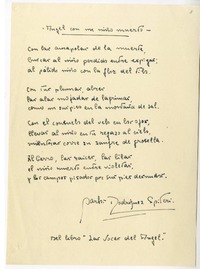 - Angel con un niño muerto -
Con las amapolas de la muerte
buscar al niño perdido entre espigas,
al pálido niño con la flor del tilo.
Con tus plumas, abrir
las alas mojadas de lágrimas
como un suspiro en la montaña de sal.
Con el consuelo del velo en los ojos,
llevar al niño en tu regazo al cielo,
mientras corre su sangre de grosella.
Al barro, las raíces, las lilas
el niño muerto entre violetas,
y los campos pisados por sus pies desnudos.
Carlos Rodríguez Spiteri
Del libro "Las voces del Angel".